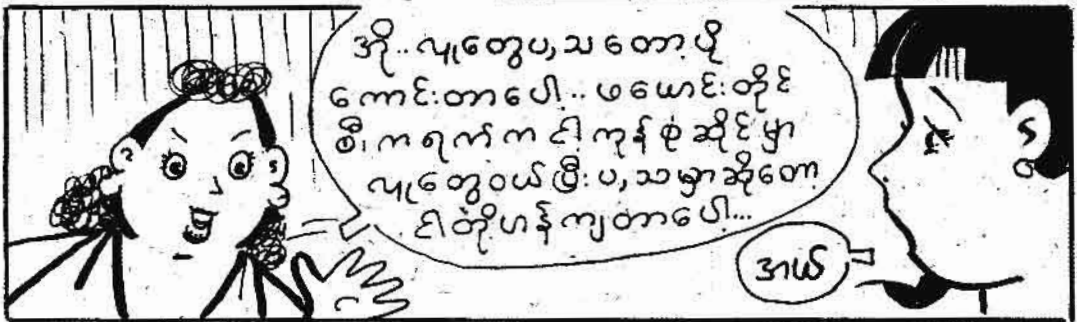 အို..လူတွေပူသတော့ပို
ကောင်းတာပေါ့..ဖယောင်းတိုင်
စီးကရက်က ငါ့ကုန်စုံဆိုင်မှာ
လူတွေဝယ်ပြီး ပူသမှာဆိုတော့
ငါတို့ဟန်ကျတာပေါ့...
အယ်